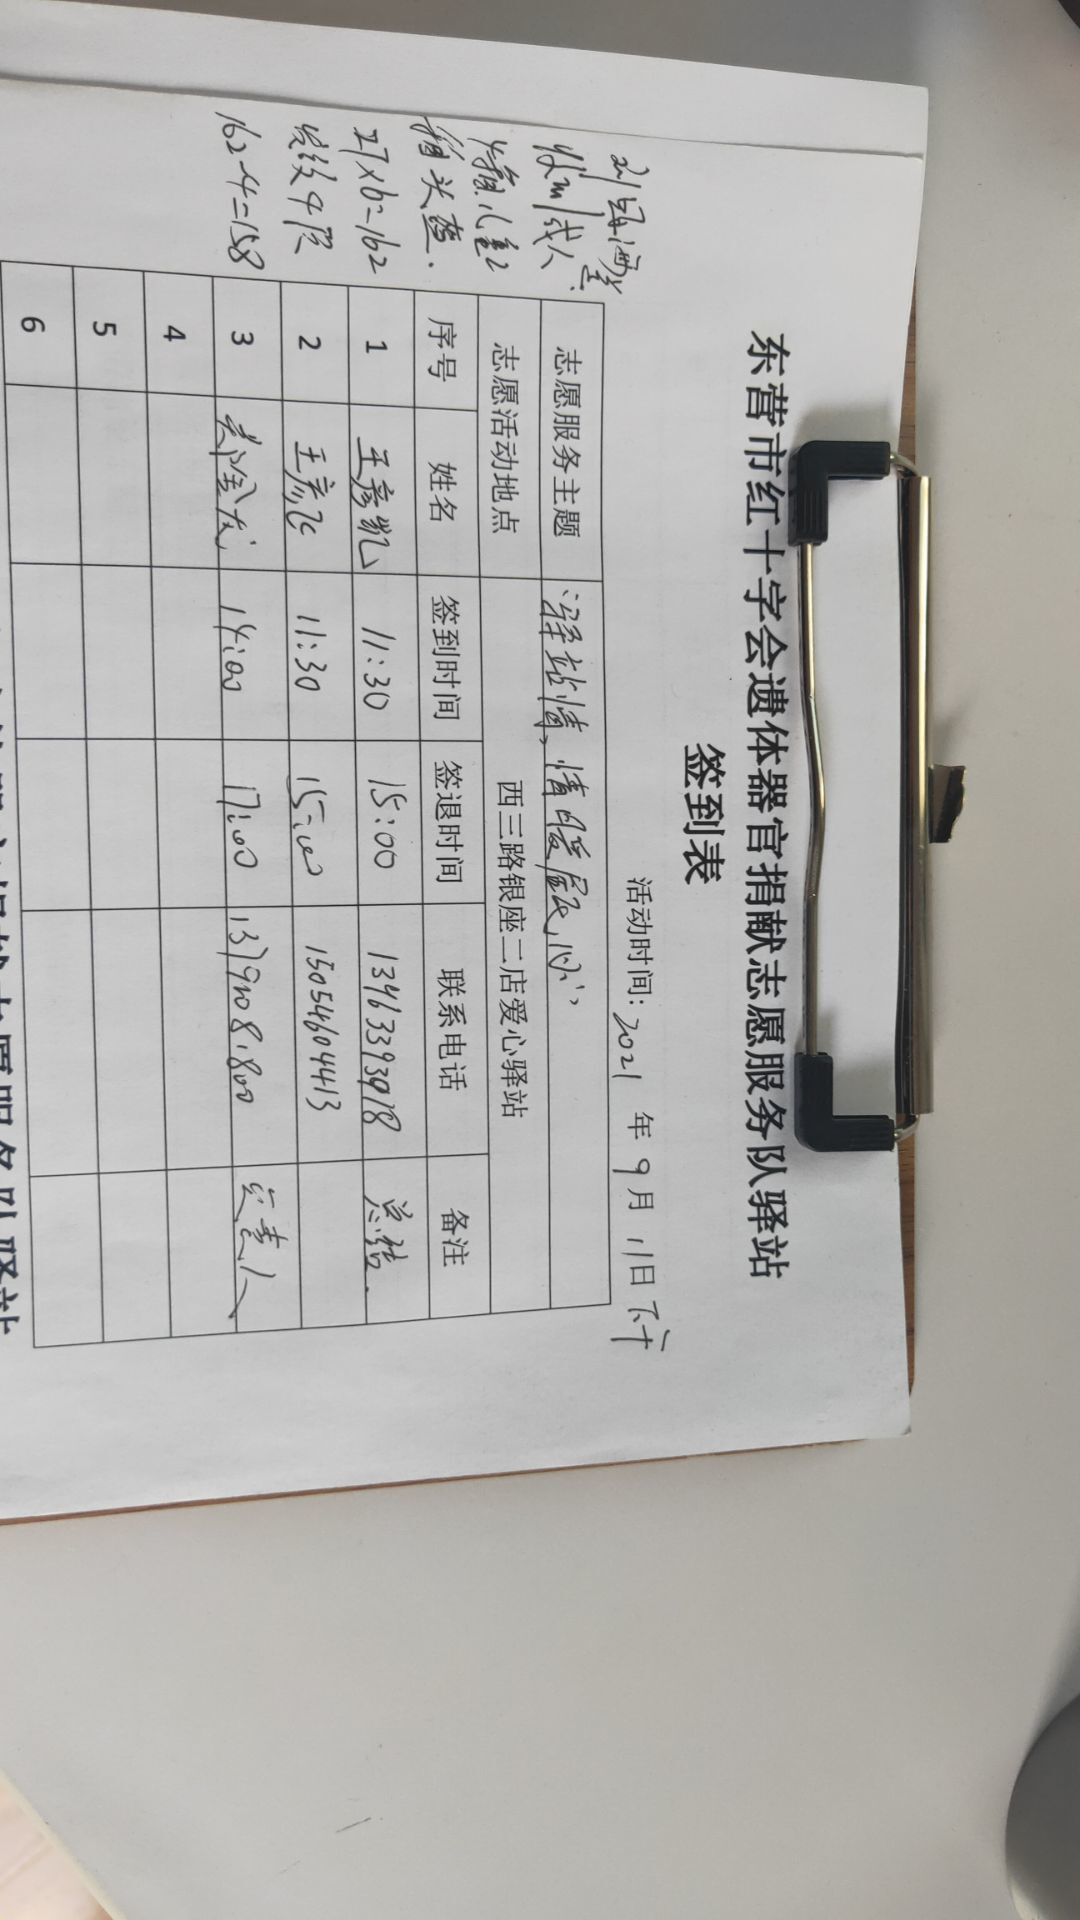 东营市红十字会遗体器官捐献志愿服务队驿站
签到表
活动时间: 2021 年 9 月 11 日 下午
志愿服务主题 驿站情、情暖居民心
志愿活动地点 西三路银座二店爱心驿站
序号 姓名 签到时间 签退时间 联系电话 备注
1 王彦凯 11:30 15:00 13463393918 总结
2 王彦 11:30 15:00 15054604413
3 14:00 17:00 负责人
4
5
6
收到成人
箱头
27×6=162
发放4顶
162-4=158